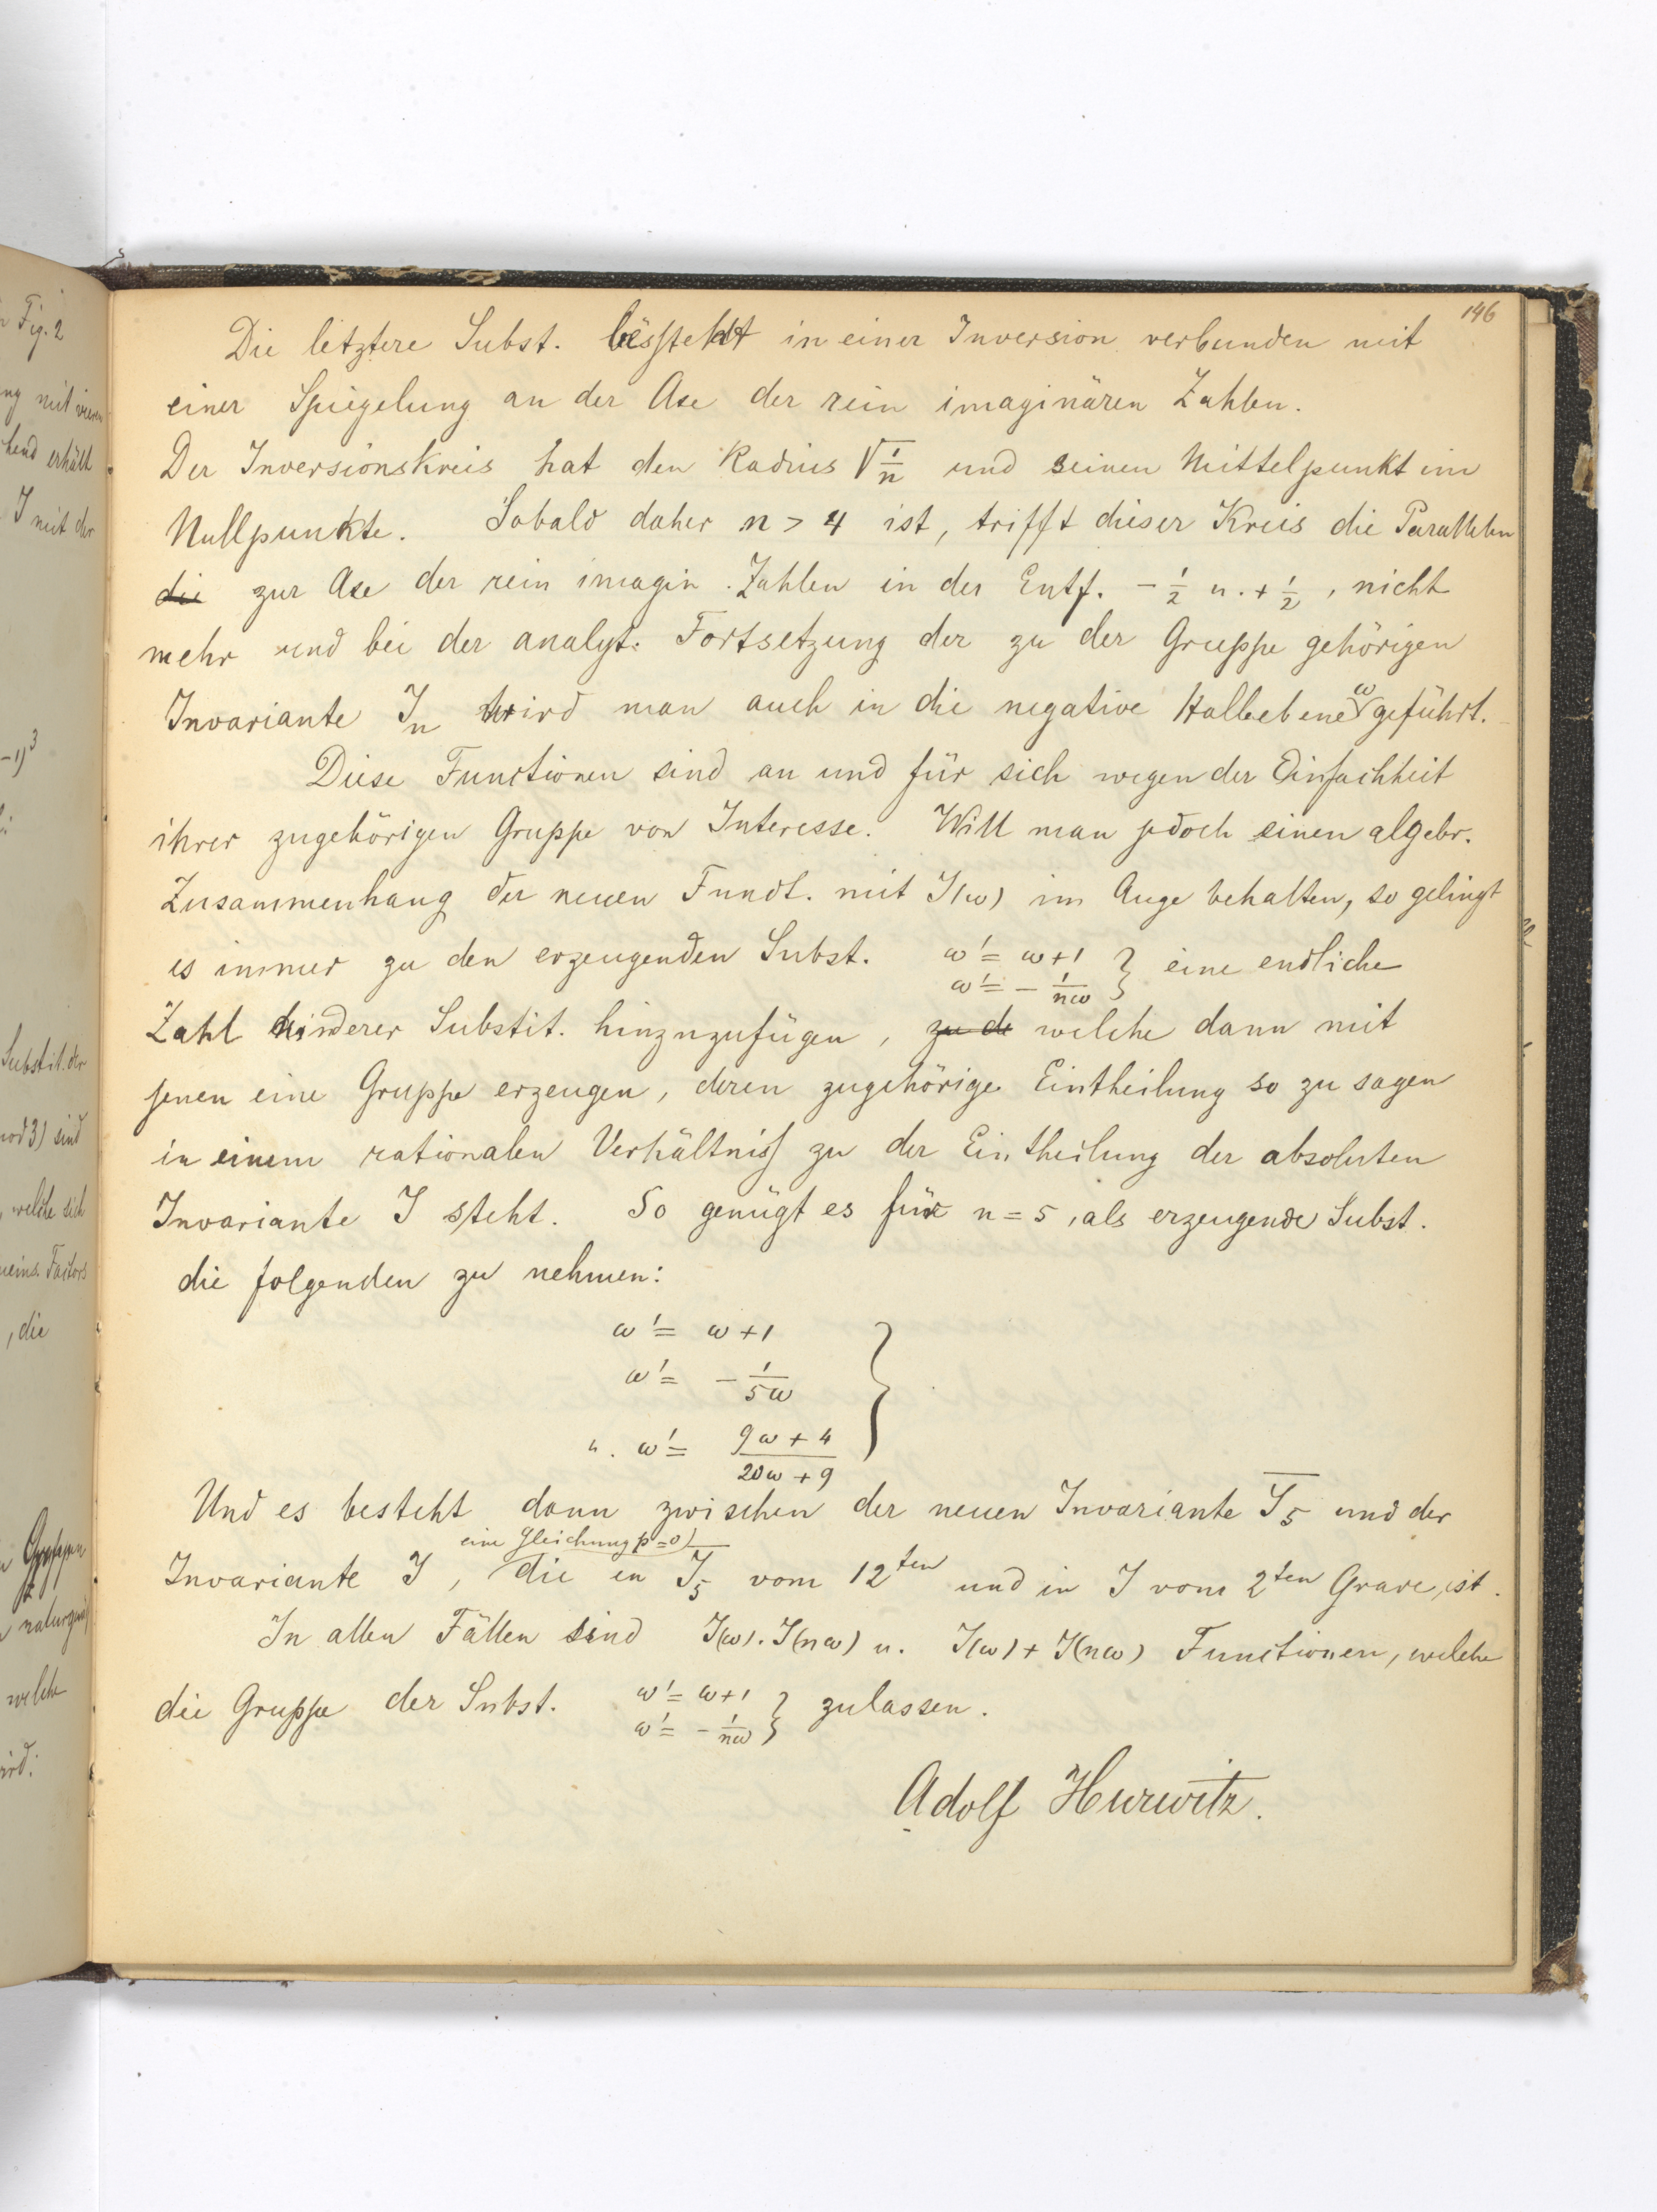 146
Die letztere Subst. besteht in einer Inversion verbunden mit
einer Spiegelung an der Axe der rein imaginären Zahlen.
Der Inversionskreis hat den Radius √1/n und seinen Mittelpunkt im
Nullpunkte. Sobald daher n > 4 ist, trifft dieser Kreis die Parallelen
die zur Axe der rein imagin. Zahlen in der Entf. -1/2 u. +1/2, nicht
mehr und bei der analyt. Fortsetzung der zu der Gruppe gehörigen
Invariante J_n wird man auch in die negative Halbebene ω geführt.
Diese Functionen sind an und für sich wegen der Einfachheit
ihrer zugehörigen Gruppe von Interesse. Will man jedoch einen algebr.
Zusammenhang der neuen Funct. mit J(ω) im Auge behalten, so gelingt
es immer zu den erzeugenden Subst. ω' = ω+1
ω' = -1/nω } eine endliche
Zahl anderer Substit. hinzuzufügen, zu de welche dann mit
jenen eine Gruppe erzeugen, deren zugehörige Eintheilung so zu sagen
in einem rationalen Verhältniss zu der Eintheilung der absoluten
Invariante J steht. So genügt es für n = 5, als erzeugende Subst.
die folgenden zu nehmen:
ω' = ω+1
ω' = -1/5ω
u. ω' = (9ω + 4)/(20ω + 9) }
Und es besteht dann zwischen der neuen Invariante J̅_5 und der
eine Gleichung p=0)
Invariante J, die in J̅_5 vom 12ten und in J vom 2ten Grade, ist.
In allen Fällen sind J(ω).J(nω) u. J(ω) + J(nω) Functionen, welche
die Gruppe der Subst. ω' = ω+1
ω' = -1/nω } zulassen.
Adolf Hurwitz.
Fig. 2
ng mit
hend erhält
J mit der
-1)³
Substit. der
mod 3) sind
, welche sich
Factors
, die
Gruppen
welche
ird: